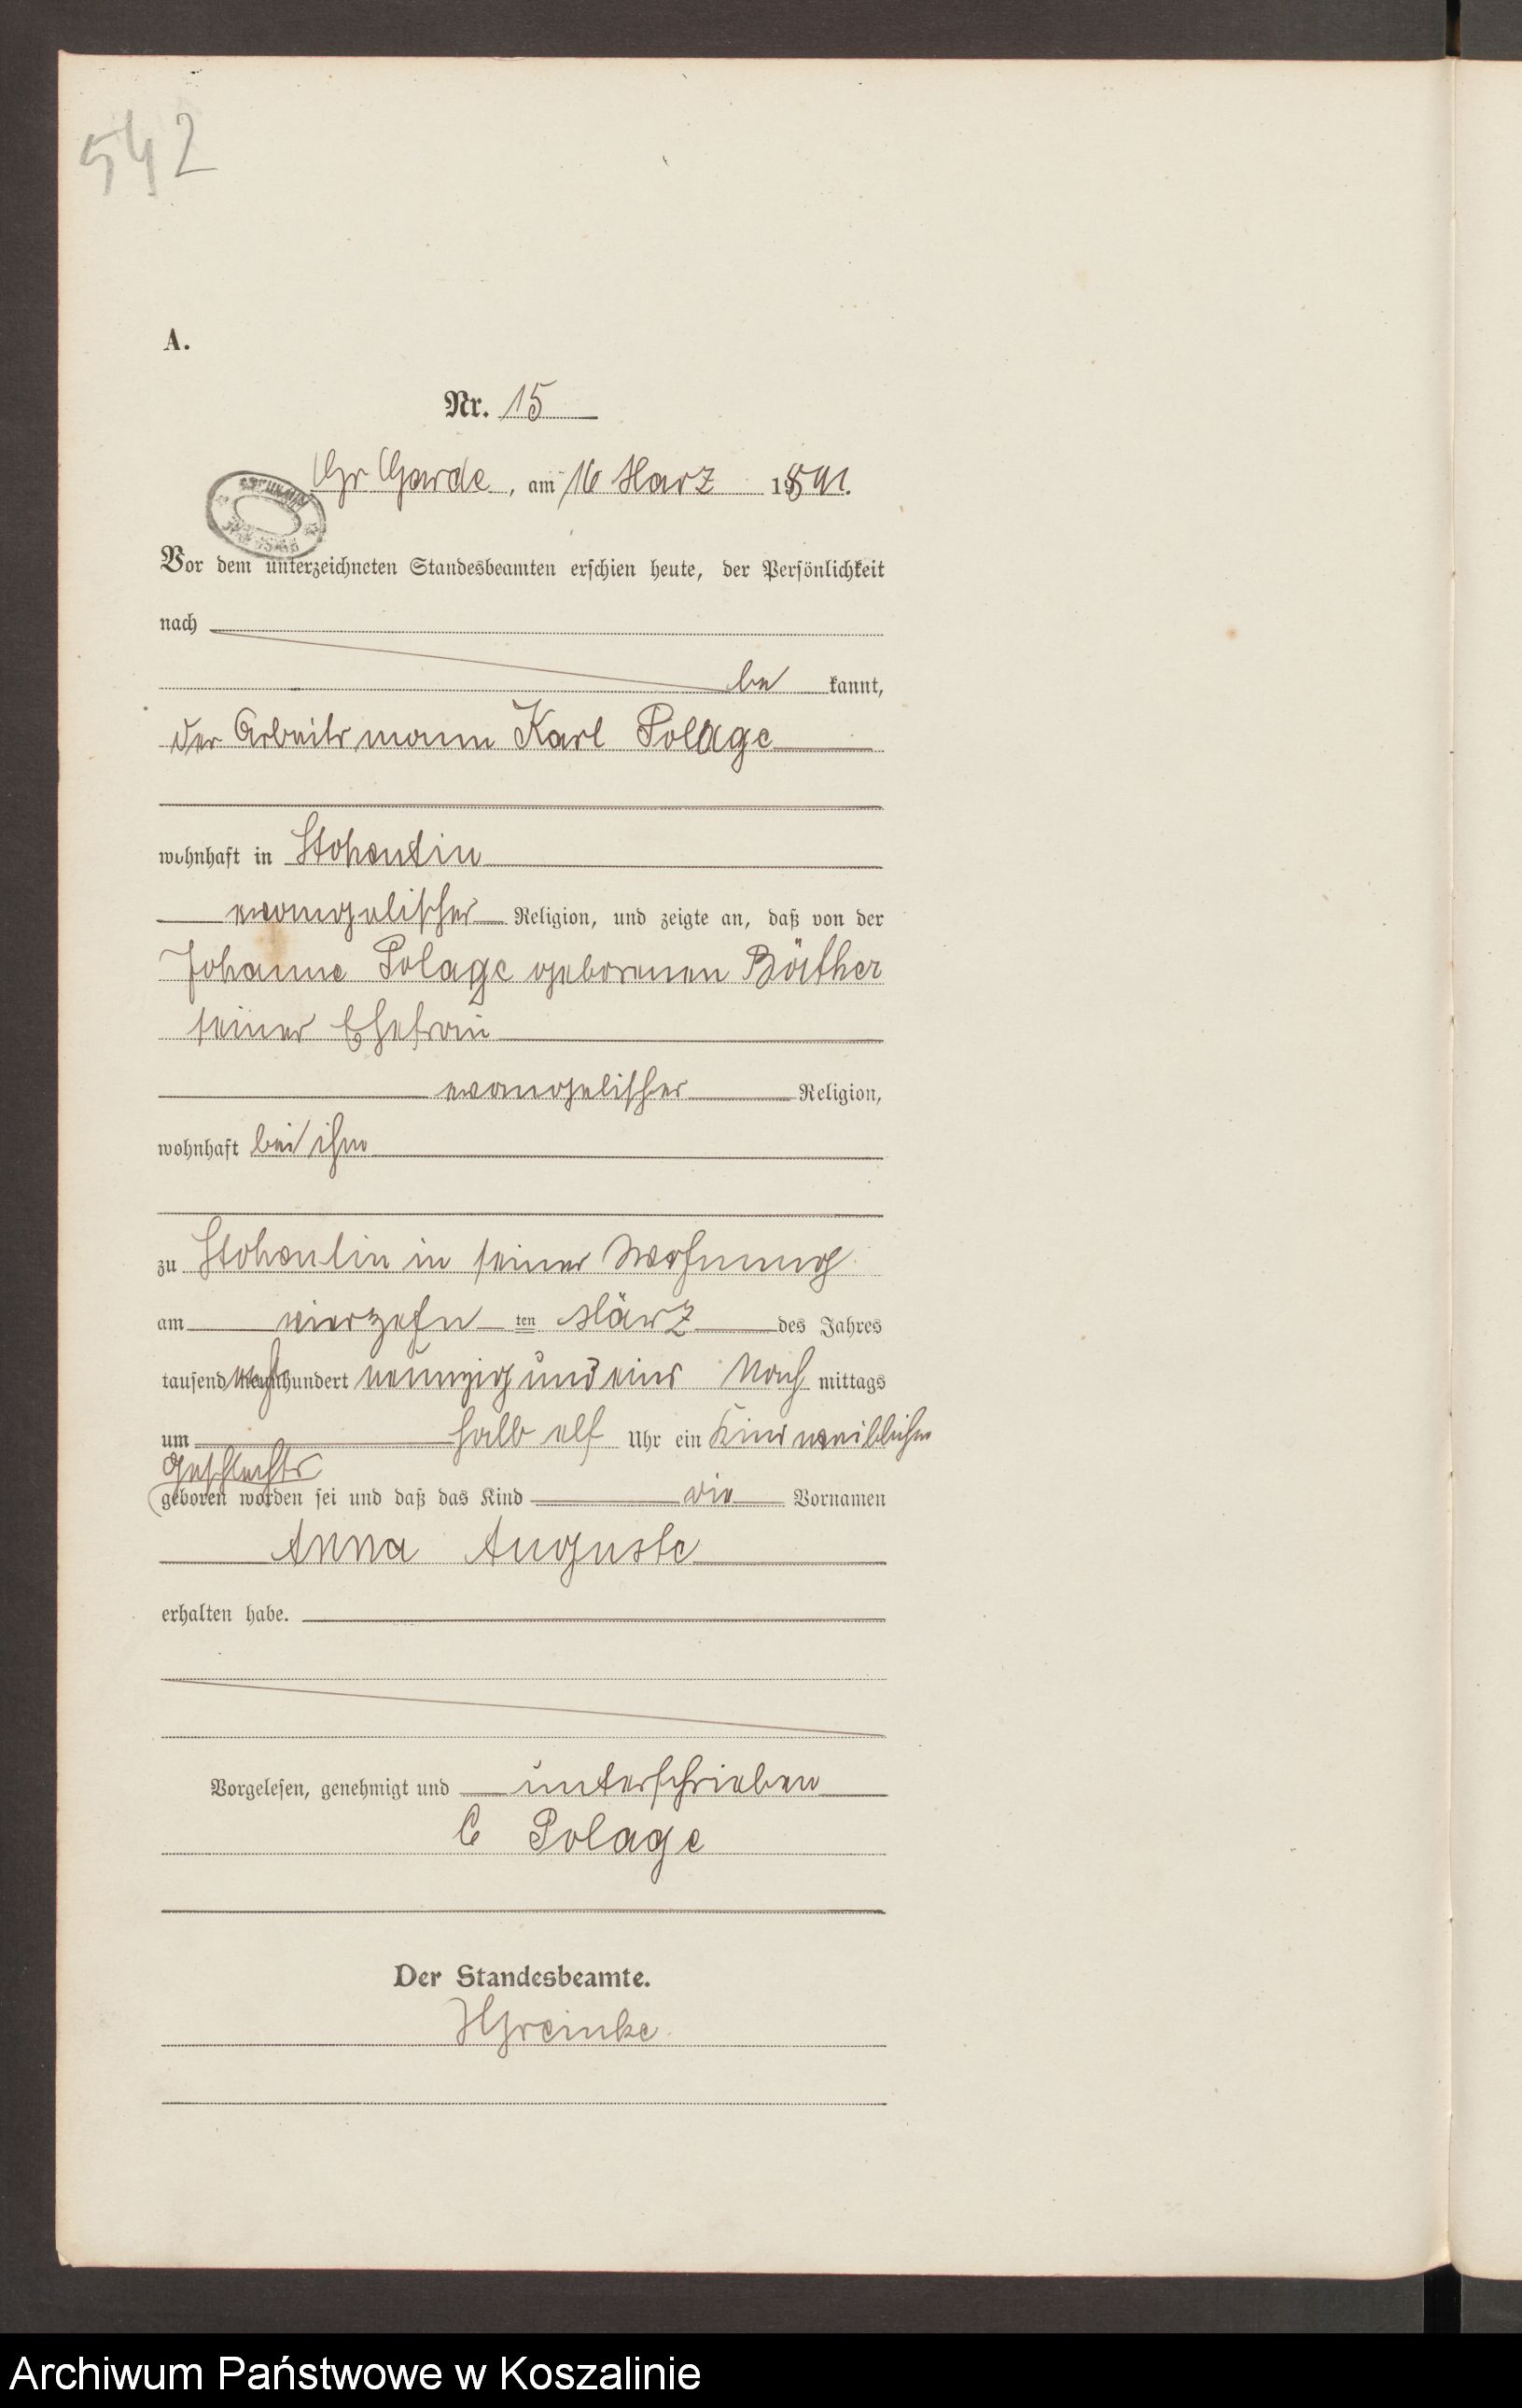 542
A.
Nr. 15
Gr Garde, am 16 März 1891.
Vor dem unterzeichneten Standesbeamten erschien heute, der Persönlichkeit
nach
be kannt,
der Arbeitsmann Karl Polage
wohnhaft in Stohentin
evangelischer Religion, und zeigte an, daß von der
Johanne Polage geborenen Böther
seiner Ehefrau
evangelischer Religion,
wohnhaft bei ihm
zu Stohentin in seiner Wohnung
am vierzehn ten März des Jahres
tausend acht hundert neunzig und eins Nach mittags
um halb elf Uhr ein Kind weiblichen
Geschlechts
geboren worden sei und daß das Kind die Vornamen
Anna Auguste
erhalten habe.
Vorgelesen, genehmigt und unterschrieben
C Polage
Der Standesbeamte.
HGreinke
Archiwum Państwowe w Koszalinie